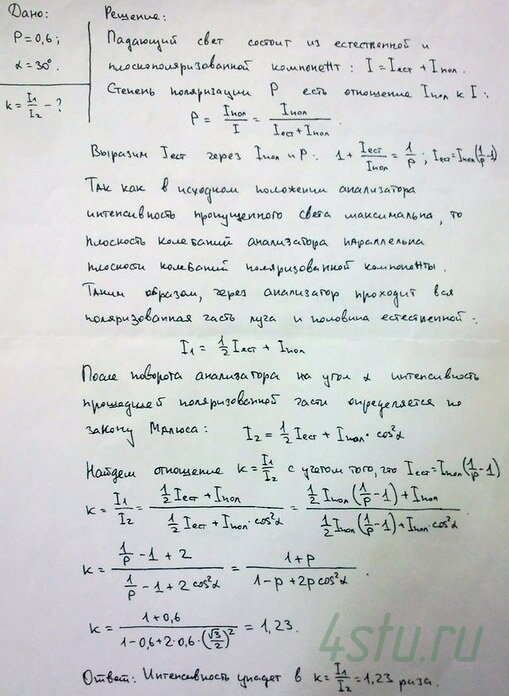 Дано:
P=0,6;
α=30°.
k=I₁/I₂ - ?
Решение:
Падающий свет состоит из естественной и
плоскополяризованной компонент: I=Iест+Iпол.
Степень поляризации P есть отношение Iпол к I:
P = Iпол/I = Iпол/(Iест+Iпол)
Выразим Iест через Iпол и P: 1+Iест/Iпол=1/P; Iест=Iпол(1/P-1)
Так как в исходном положении анализатора
интенсивность пропущенного света максимальна, то
плоскость колебаний анализатора параллельна
плоскости колебаний поляризованной компоненты.
Таким образом, через анализатор проходит вся
поляризованная часть луча и половина естественной:
I₁ = 1/2 Iест + Iпол
После поворота анализатора на угол α интенсивность
прошедшей поляризованной части определяется по
закону Малюса: I₂=1/2 Iест + Iпол·cos²α
Найдем отношение k=I₁/I₂ с учетом того, что Iест=Iпол(1/P-1)
k = I₁/I₂ = (1/2 Iест + Iпол)/(1/2 Iест + Iпол·cos²α) = (1/2 Iпол(1/P-1)+Iпол)/(1/2 Iпол(1/P-1)+Iпол·cos²α)
k = (1/P-1+2)/(1/P-1+2cos²α) = (1+P)/(1-P+2Pcos²α).
k = (1+0,6)/(1-0,6+2·0,6·(√3/2)²) = 1,23.
4stu.ru
Ответ: Интенсивность упадет в k=I₁/I₂=1,23 раза.